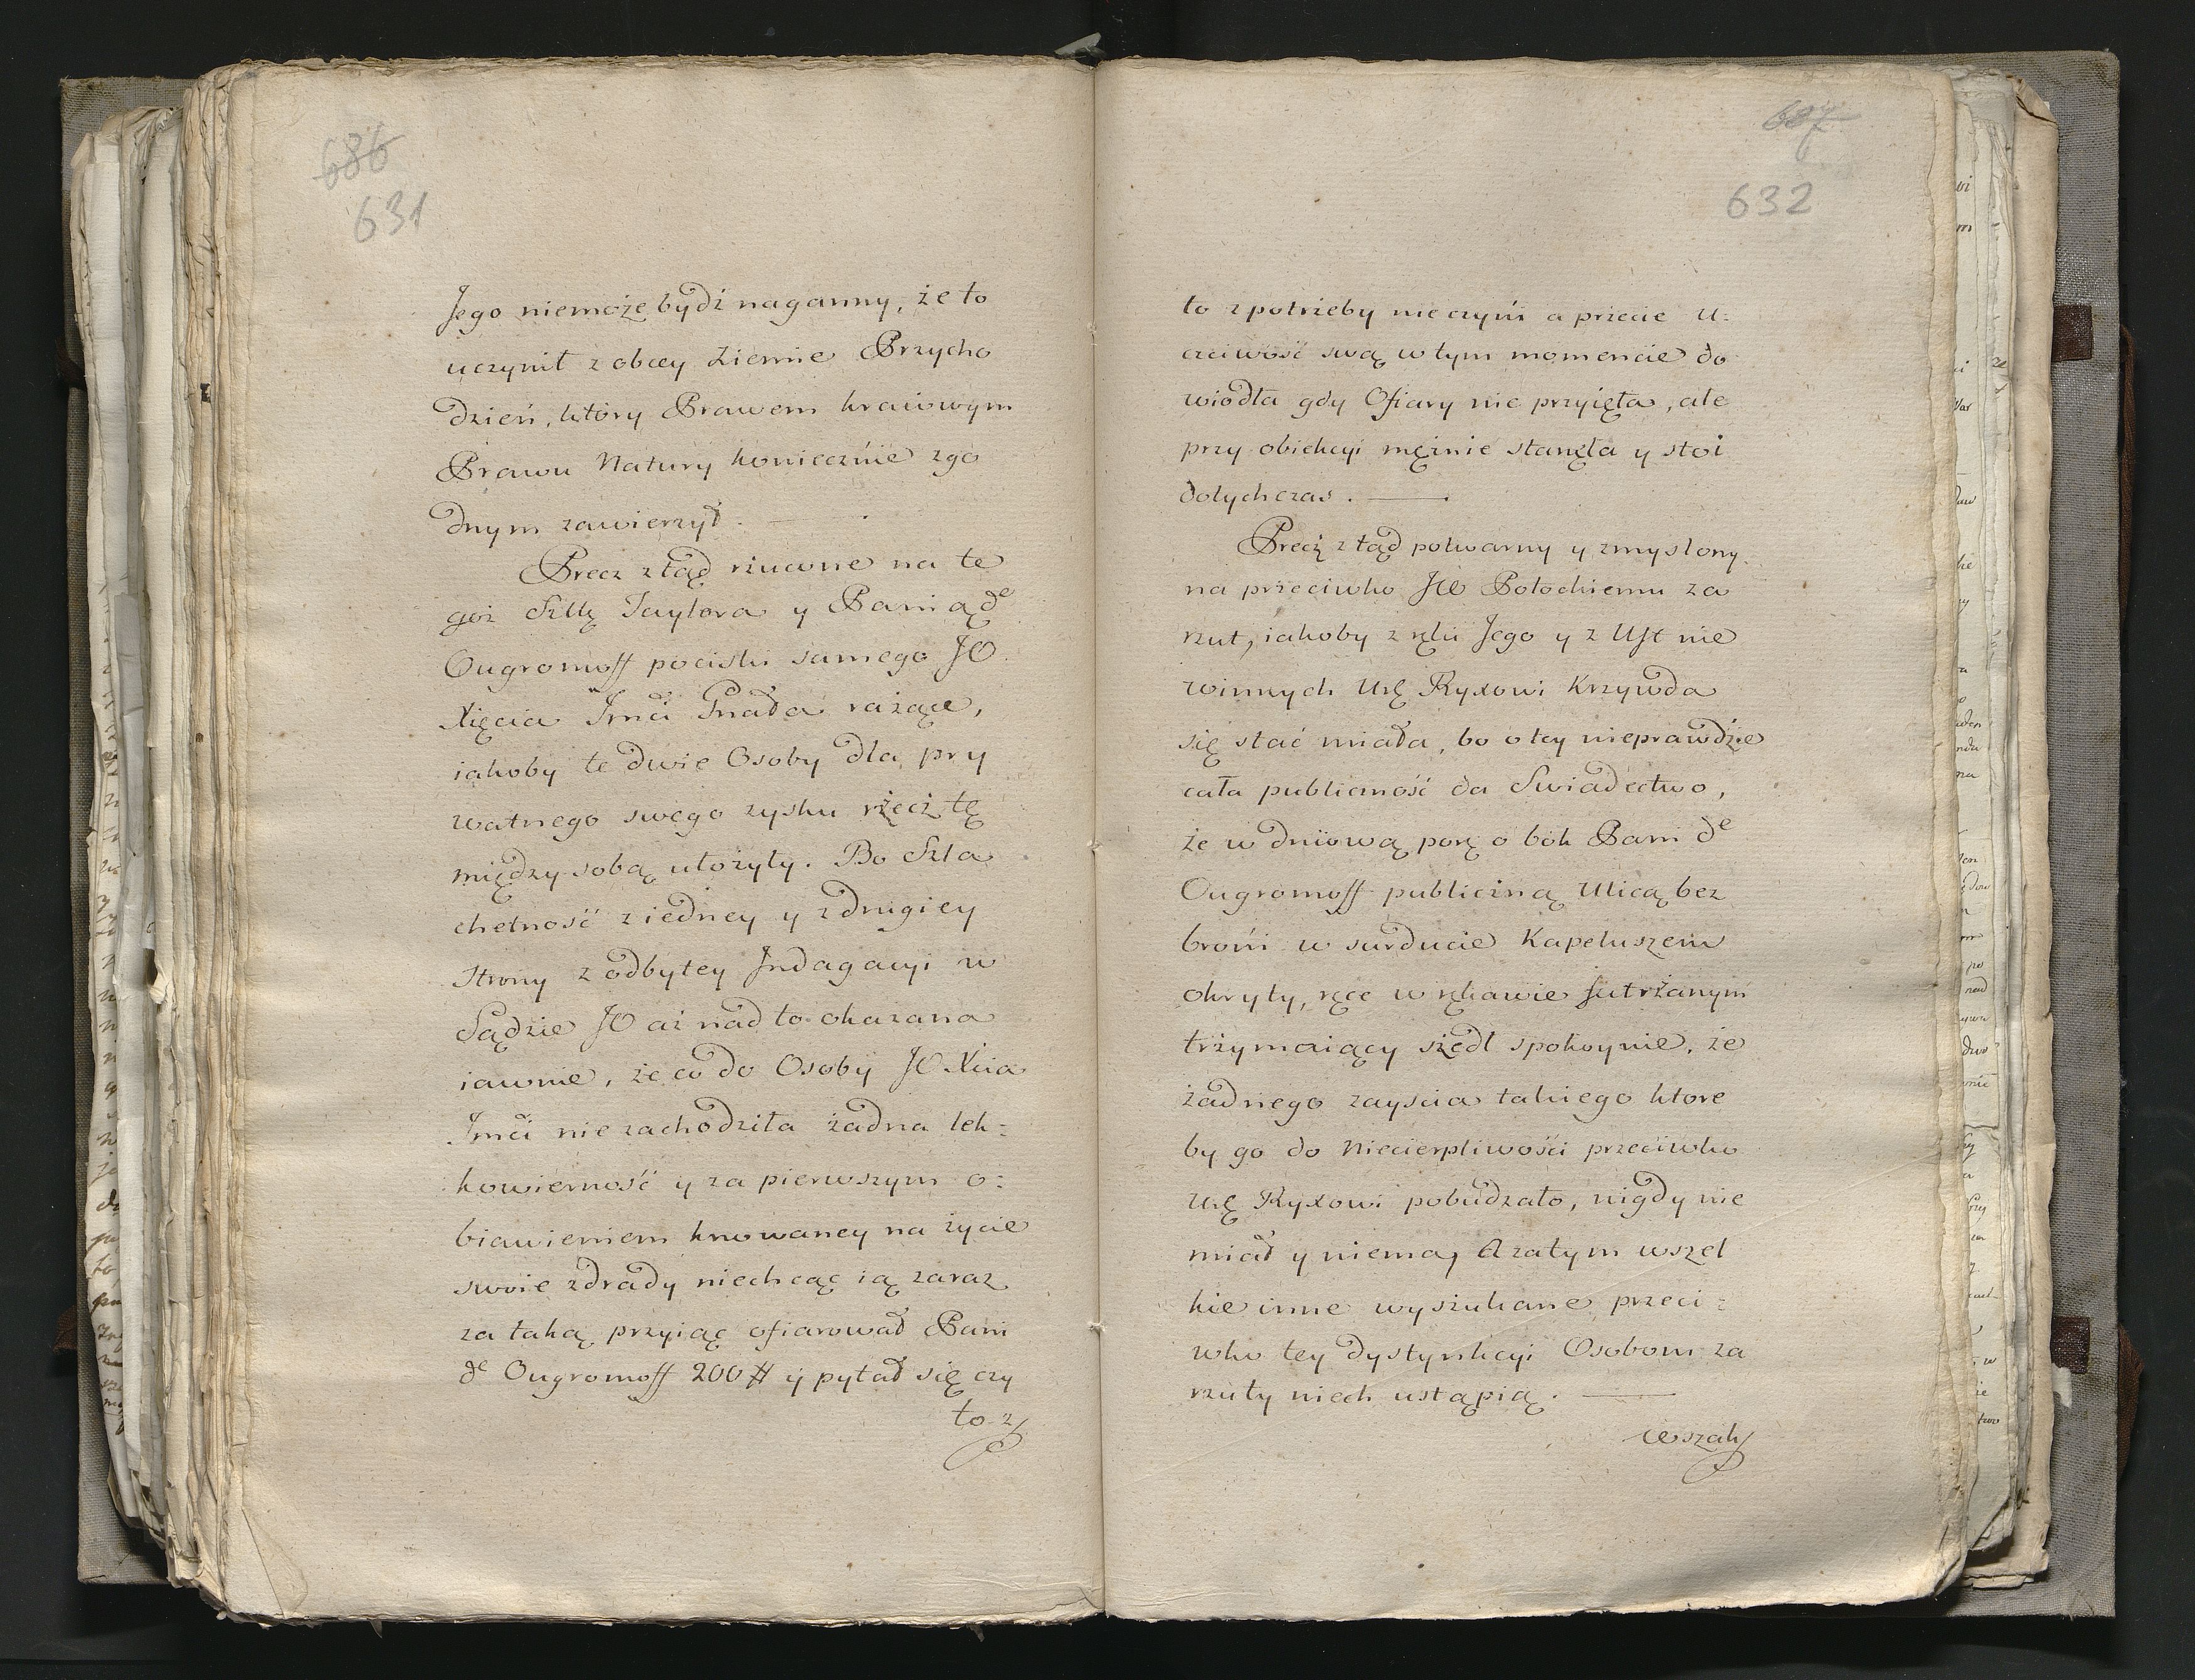 686
631
Jego niemoże bydź naganny, że to
uczynił z obcey Ziemie Przycho
dzień, który Prawem kraiowym
Prawu Natury koniecznie zgo
dnym zawierzył.
Precz ztąd rzucone na te
goż Szllę Taylora y Panią de
Ougromoff pociski samego JO
Xięcia Jmći Gnała rażące,
iakoby te dwie Osoby dla pry
watnego swego zysku rzecz tę
między sobą ułożyły. Bo Szla
chetność z iedney y z drugiey
strony z odbytey Jndagacyi w
Sądzie JO aż nad to okazana
iawnie, że co do Osoby JO Xcia
Jmći nie zachodziła żadna lek:
kowierność y za pierwszym o:
biawieniem knowaney na życie
swoie zdrady niechcąc ią zaraz
za taką przyiąć ofiarował Pani
de Ougromoff 200 # y pytał się czy
to z
687
632
to z potrzeby nie czyni a przecie U:
czciwość swą w tym momencie do
wiodła gdy Ofiary nie przyięła, ale
przy obiekcyi mężnie stanęła y stoi
dotychczas.
Precz ztąd potwarny y zmyslony
na przeciwko JW Potockiemu za
rzut, iakoby z ręki Jego y z Ust nie
winnych Urę Ryxowi Krzywda
się stać miała, bo o tey nieprawdzie
cała publiczność da Swiadectwo,
że w dniową porę o bok Pani de
Ougromoff publiczną Ulicą bez
broni w surducie Kapeluszem
okryty, ręce w rękawie futrzanym
trzymaiący szedł spokoynie, że
żadnego zayscia takiego ktore
by go do Niecierpliwości przeciwko
Urę Ryxowi pobudzało, nigdy nie
miał y niema, A zatym wszel
kie inne wyszukane przeci:
wko tey dystynkcyi Osobom za
rzuty niech ustąpią.
Wszak